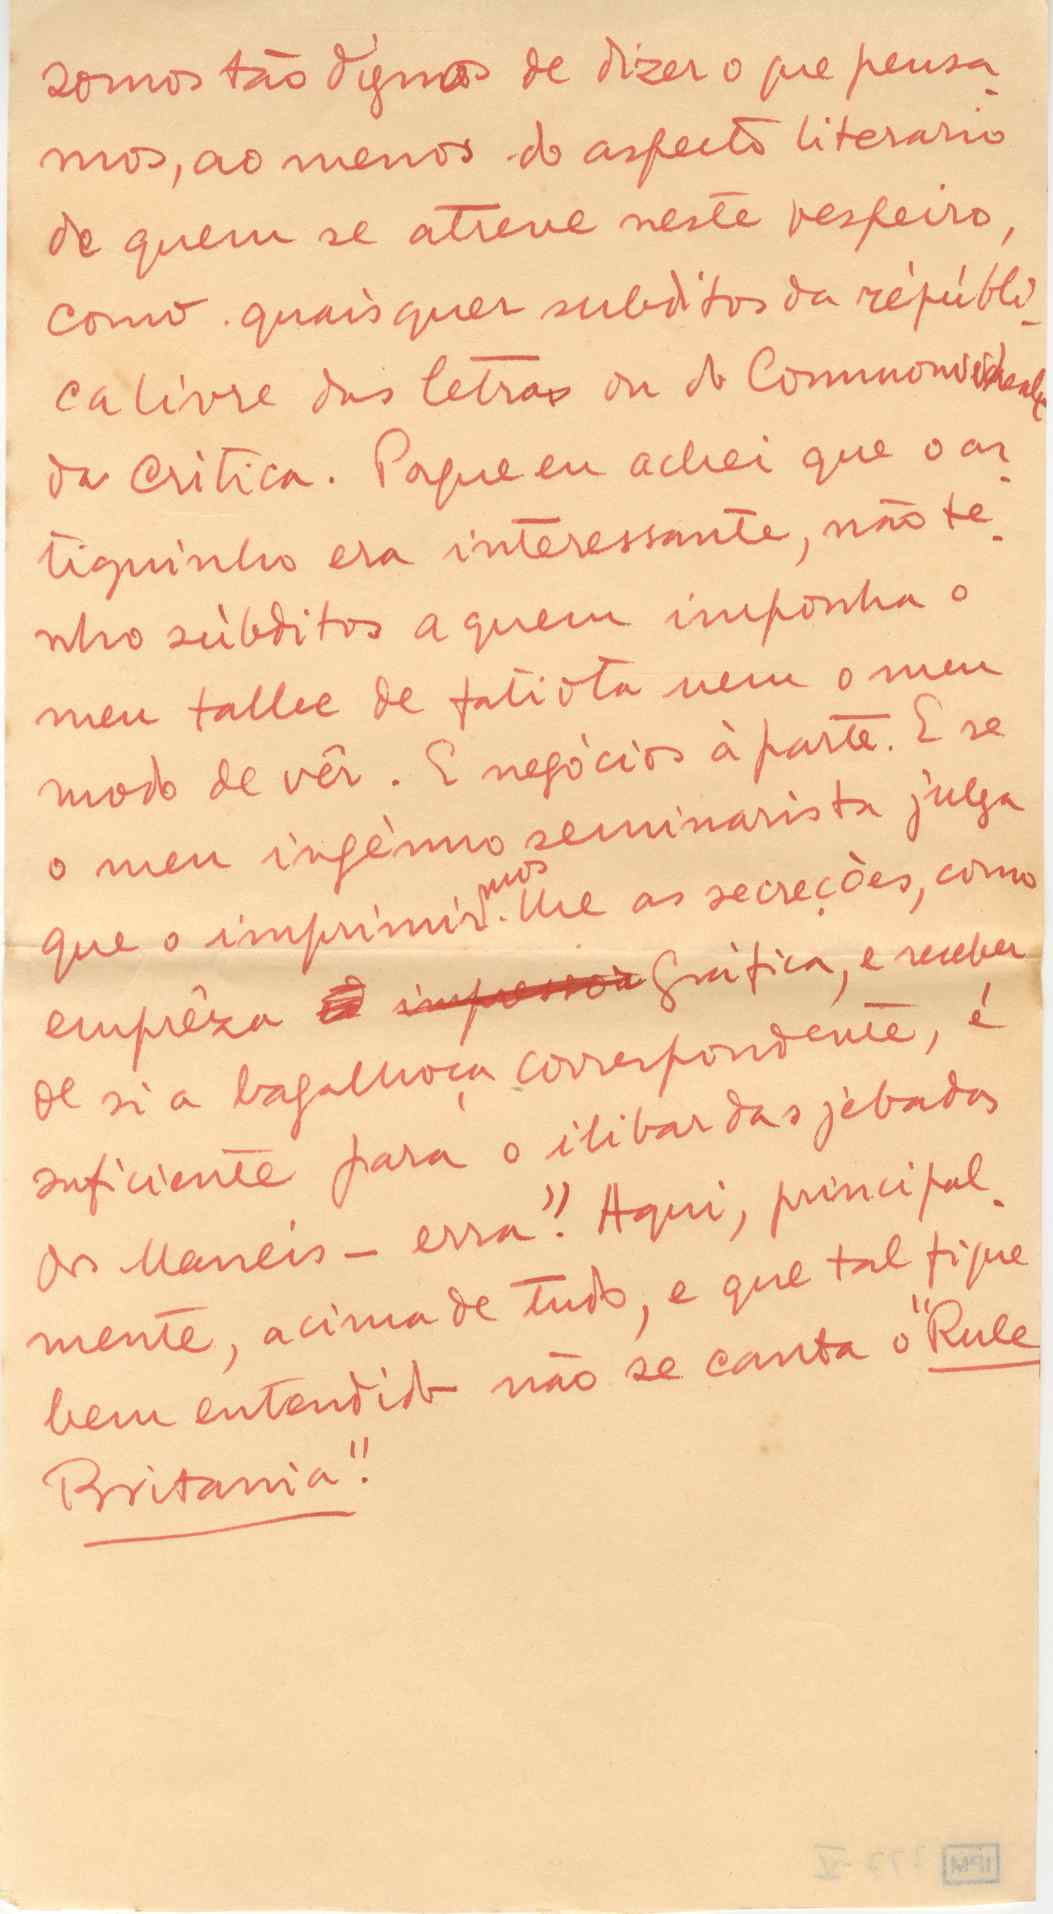 somos tão dígnos de dizer o que pensa-
mos, ao menos do aspecto literario
de quem se atreve neste vespeiro,
como quaisquer subditos da repúbli-
ca livre das letras ou do Commonwealth
da Critica. Porque eu achei que o ar-
tiguinho era interessante, não te-
nho súbditos a quem imponha o
meu talhe de fatiota nem o meu
modo de vêr. E negócios à parte. E se
o meu ingénuo seminarista julga
que o imprimir
mos
-lhe as secreções, como
emprêza impressora Gráfica, e receber
de si a bagalhoça correspondente, é
suficiente para o ilibar das jebadas
dos Manéis — erra"! Aqui, principal-
mente, acima de tudo, e que tal fique
bem entendido não se canta o "Rule
Britania"!
IPM